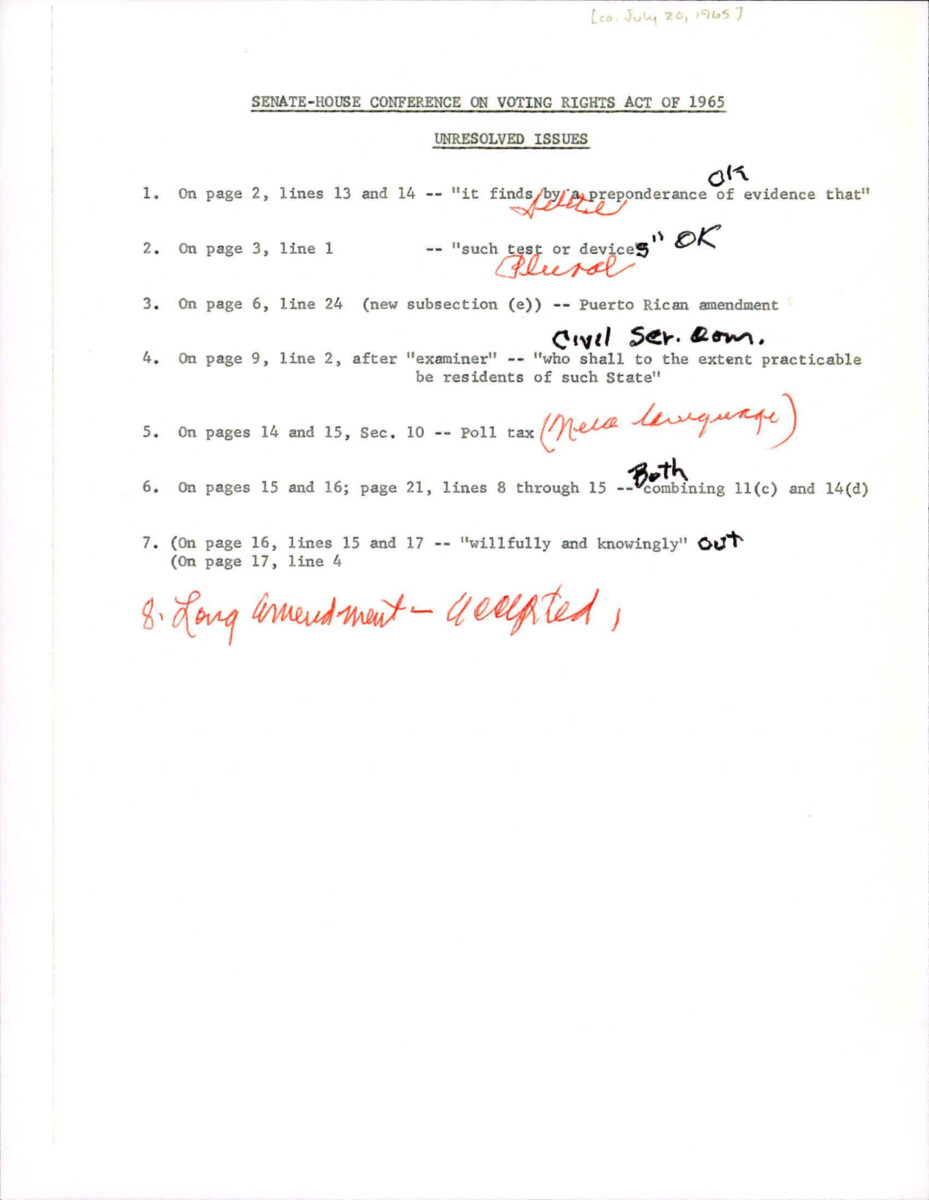 [ca. July 20, 1965]
SENATE-HOUSE CONFERENCE ON VOTING RIGHTS ACT OF 1965
UNRESOLVED ISSUES
OK
1. On page 2, lines 13 and 14 -- "it finds by a preponderance of evidence that"
delete
2. On page 3, line 1 -- "such test or devices" OK
Plural
3. On page 6, line 24 (new subsection (e)) -- Puerto Rican amendment
Civil Ser. Com.
4. On page 9, line 2, after "examiner" -- "who shall to the extent practicable
be residents of such State"
5. On pages 14 and 15, Sec. 10 -- Poll tax (New language)
Both
6. On pages 15 and 16; page 21, lines 8 through 15 -- combining 11(c) and 14(d)
7. (On page 16, lines 15 and 17 -- "willfully and knowingly" out
(On page 17, line 4
8. Long amendment - accepted,